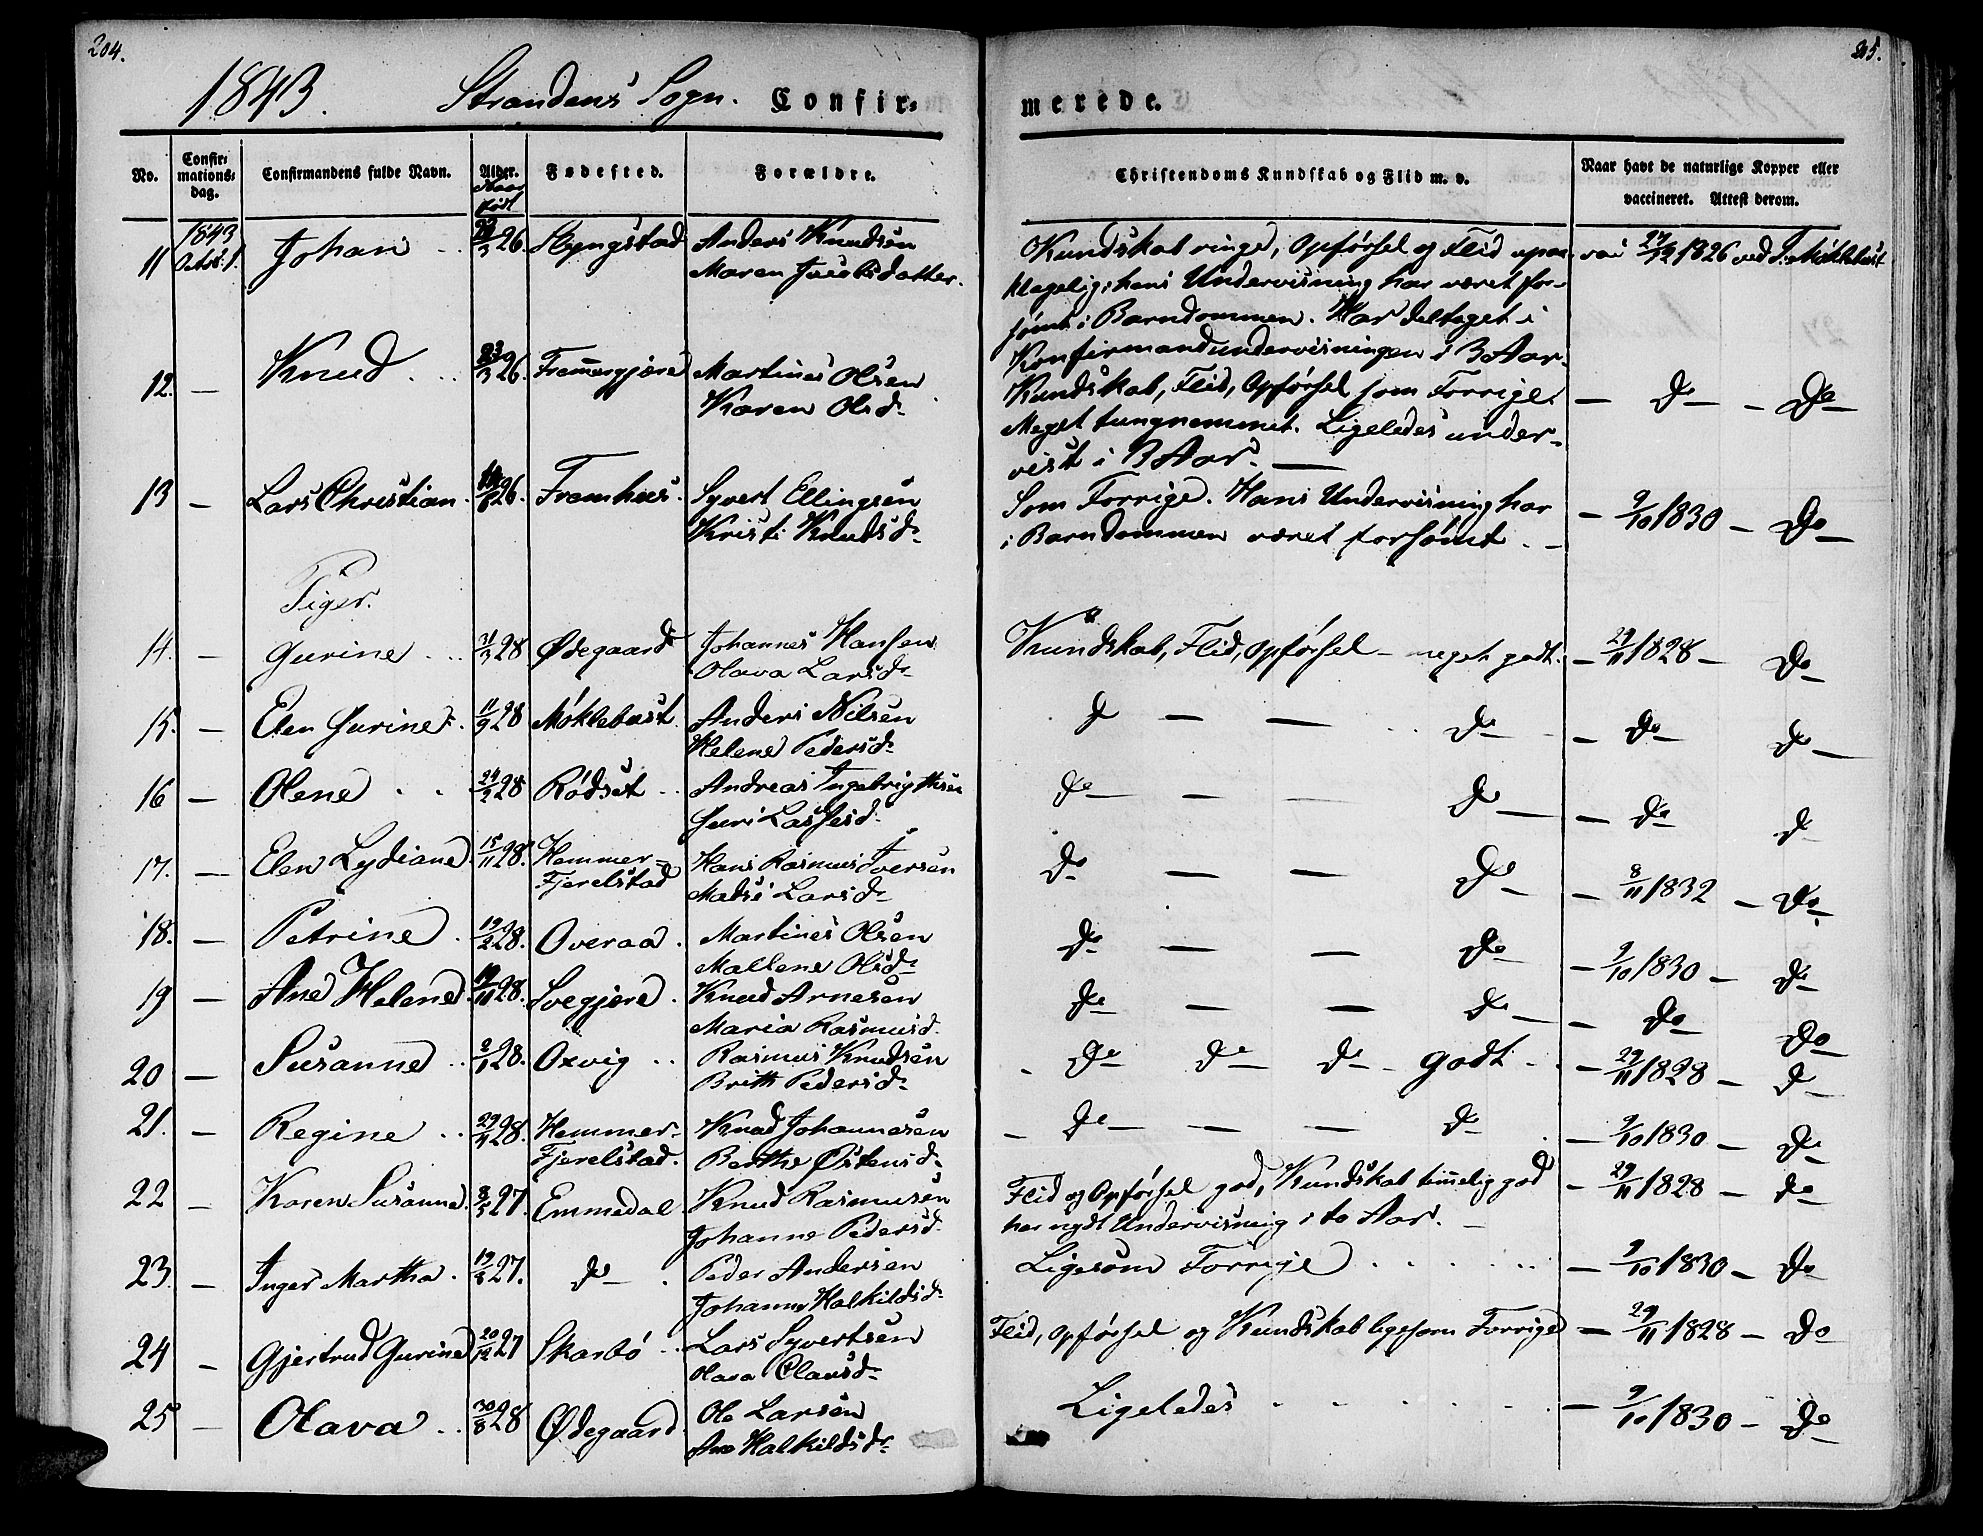 204.
1843. Strandens Sogn. Confir-
No. Confirmationsdag. Confirmandens fulde Navn. Alder. Fødested. Forældre.
født
11 1843 Octob: 1. Johan 3 26. Ryngstad Anders Knudsen
Maren Jacobsdatter.
12. — Knud 23/3 26. Frammergjære Martines Olsen
Karen Olsd.
13 — Lars Christian. 26. Framhus. Syvert Ellingsen
Kristi Knudsd.
Piger.
14. — Gurine 31/3 28 Ødegaard Johannes Hansen
Olava Larsd.
15. — Elen Gurine. 11/9 28 Møklebust. Anders Nilsen
Helene Pedersd.
16 — Olene 24/2 28 Rødset Andreas Ingebrigthsen
Guri Lassesd.
17. — Elen Lydiane 15/11 28. Hammer- Hans Rasmus Iversen
Fjerelstad Madsi Larsd.
18. — Petrine 19/2 28. Overaa. Martines Olsen
Mallene Olsd.
19 — Ane Helene 28. Svegjære. Knud Arnesen
Maria Rasmusd.
20 — Susanne 2/1 28. Oxvig Rasmus Knudsen
Brith Pedersd.
21. — Regine 28. Hammer- Knud Johannesen
Fjerelstad. Berthe Østensd.
22 — Karen Susanne. 27. Emmedal Knud Rasmusen
Johanne Pedersd.
23. — Inger Martha. 27. do Peder Andersen
Johanne Halkildsd.
24 — Gjertrud Gurine 20/12 27 Skarbø Lars Syvertsen
Olava Clausd.
25 — Olava 30/8 28 Ødegaard Ole Larsen
Ane Halkildsd.
205.
merede.
Christendoms Kundskab og Flid m. v. Naar havt de naturlige Kopper eller
vaccineret. Attest derom.
Kundskab ringe, Opførsel og Flid upaa- vac 1826 ved F. Møklebust
klagelig; hans Undervisning har været for-
sømt i Barndommen. Har deltaget i
Konfirmandundervisningen i 3 Aar.
Kundskab, Flid, Opførsel som Forrige. — do — do
Meget tungnemmet. Ligeledes under-
vist i 3 Aar. —
Som Forrige. Hans Undervisning har — 9/10 1830 — do
i Barndommen været forsømt. —
Kundskab, Flid, Opførsel — meget godt. — 29/11 1828 — do
do — — do — do do —
do — — do — do do
do — — do — 8/11 1832 — do
do — — do — 9/10 1830 — do
do — — do — do do
do do do godt — 29/11 1828 — do
— do — — — do — 9/10 1830 — do
Flid og Opførsel god, Kundskab timmelig god — 29/11 1828 — do
har nydt Undervisning i to Aar. —
Ligesom Forrige — 9/10 1830 — do
Flid, Opførsel og Kundskab ligesom Forrige — 29/11 1828 — do
Ligeledes — 9/10 1830 — do